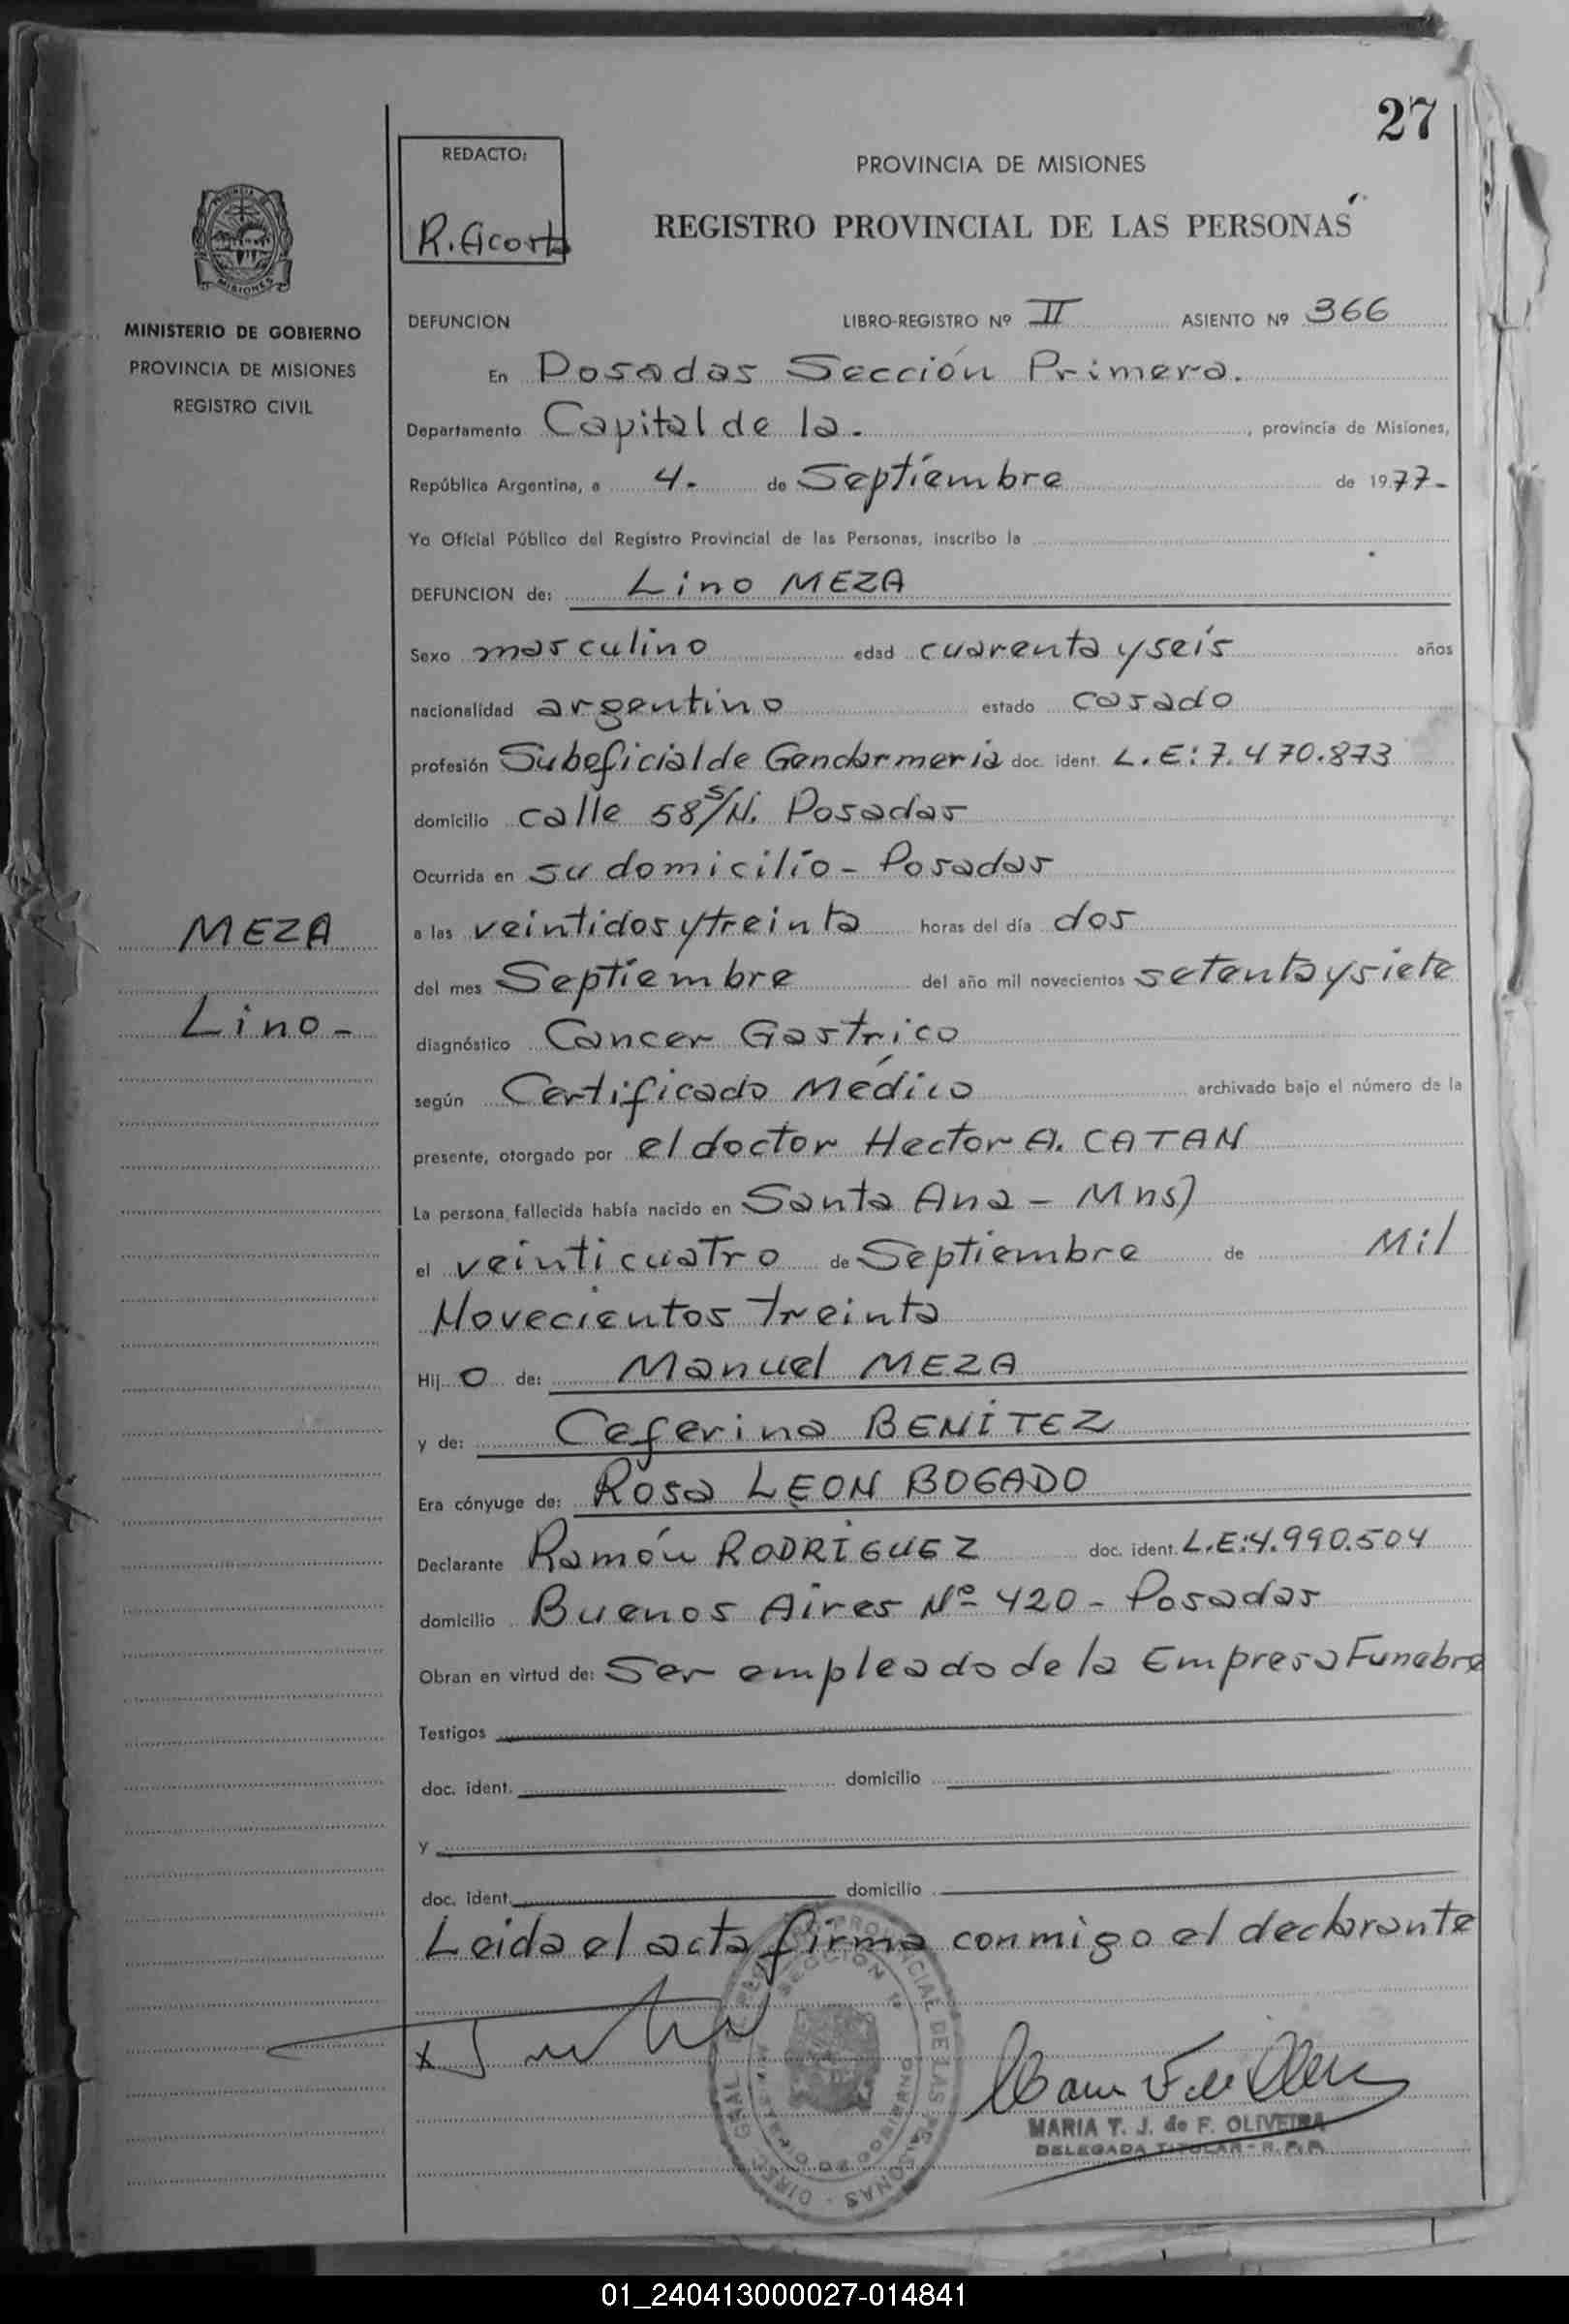 27
REDACTO:
R. Acosta
PROVINCIA DE MISIONES
REGISTRO PROVINCIAL DE LAS PERSONAS
MINISTERIO DE GOBIERNO
PROVINCIA DE MISIONES
REGISTRO CIVIL
DEFUNCION LIBRO-REGISTRO Nº II ASIENTO Nº 366
En Posadas Sección Primera.
Departamento Capital de la. , provincia de Misiones,
República Argentina, a 4. de Septiembre de 1977-
Yo Oficial Público del Registro Provincial de las Personas, inscribo la
DEFUNCION de: Lino MEZA
Sexo masculino edad cuarenta y seis años
nacionalidad argentino estado casado
profesión Suboficial de Gendarmeria doc. ident. L.E: 7.470.873
domicilio calle 58 S/N. Posadas
Ocurrida en su domicilio - Posadas
MEZA
Lino-
a las veintidos y treinta horas del día dos
del mes Septiembre del año mil novecientos setenta y siete
diagnóstico Cancer Gastrico
según Certificado Médico archivado bajo el número de la
presente, otorgado por el doctor Hector A. CATAN
La persona fallecida había nacido en Santa Ana - Mns)
el veinticuatro de Septiembre de Mil
Novecientos treinta
Hij o de: Manuel MEZA
y de: Ceferina BENITEZ
Era cónyuge de: Rosa LEON BOGADO
Declarante Ramón RODRIGUEZ doc. ident. L.E: 4.990.504
domicilio Buenos Aires Nº 420 - Posadas
Obran en virtud de: Ser empleado de la Empresa Funebre
Testigos
doc. ident. domicilio
y
doc. ident. domicilio
Leida el acta firma conmigo el declarante
x
MARIA T. J. de F. OLIVEIRA
DELEGADA TITULAR - R. P. P.
01_240413000027-014841